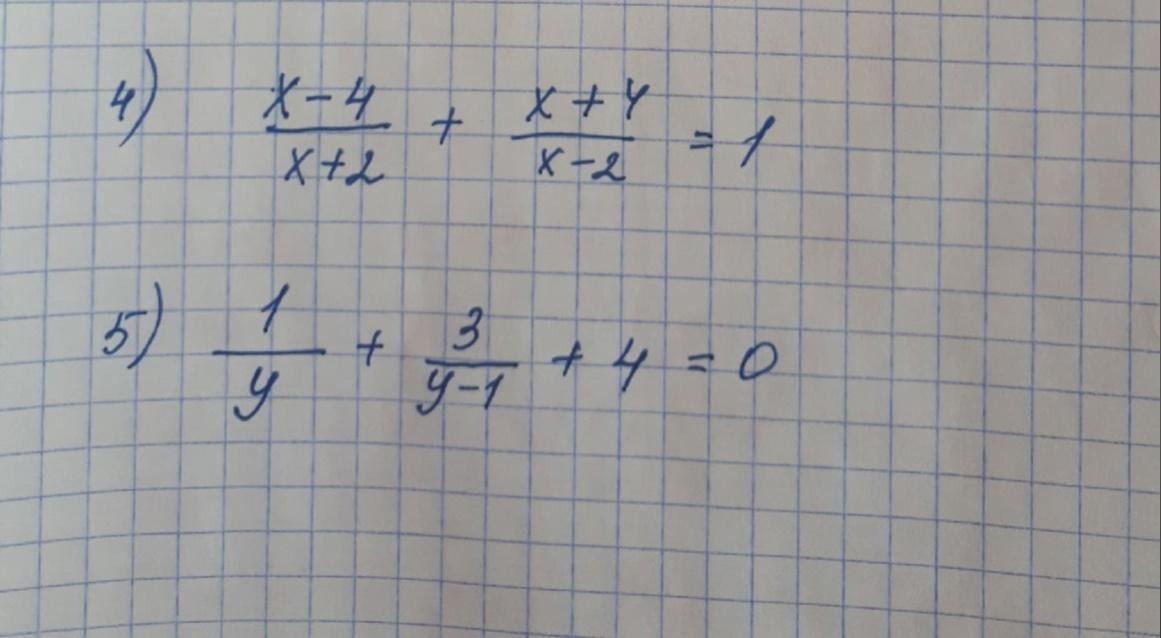 4) (x-4)/(x+2) + (x+4)/(x-2) = 1
5) 1/y + 3/(y-1) + 4 = 0